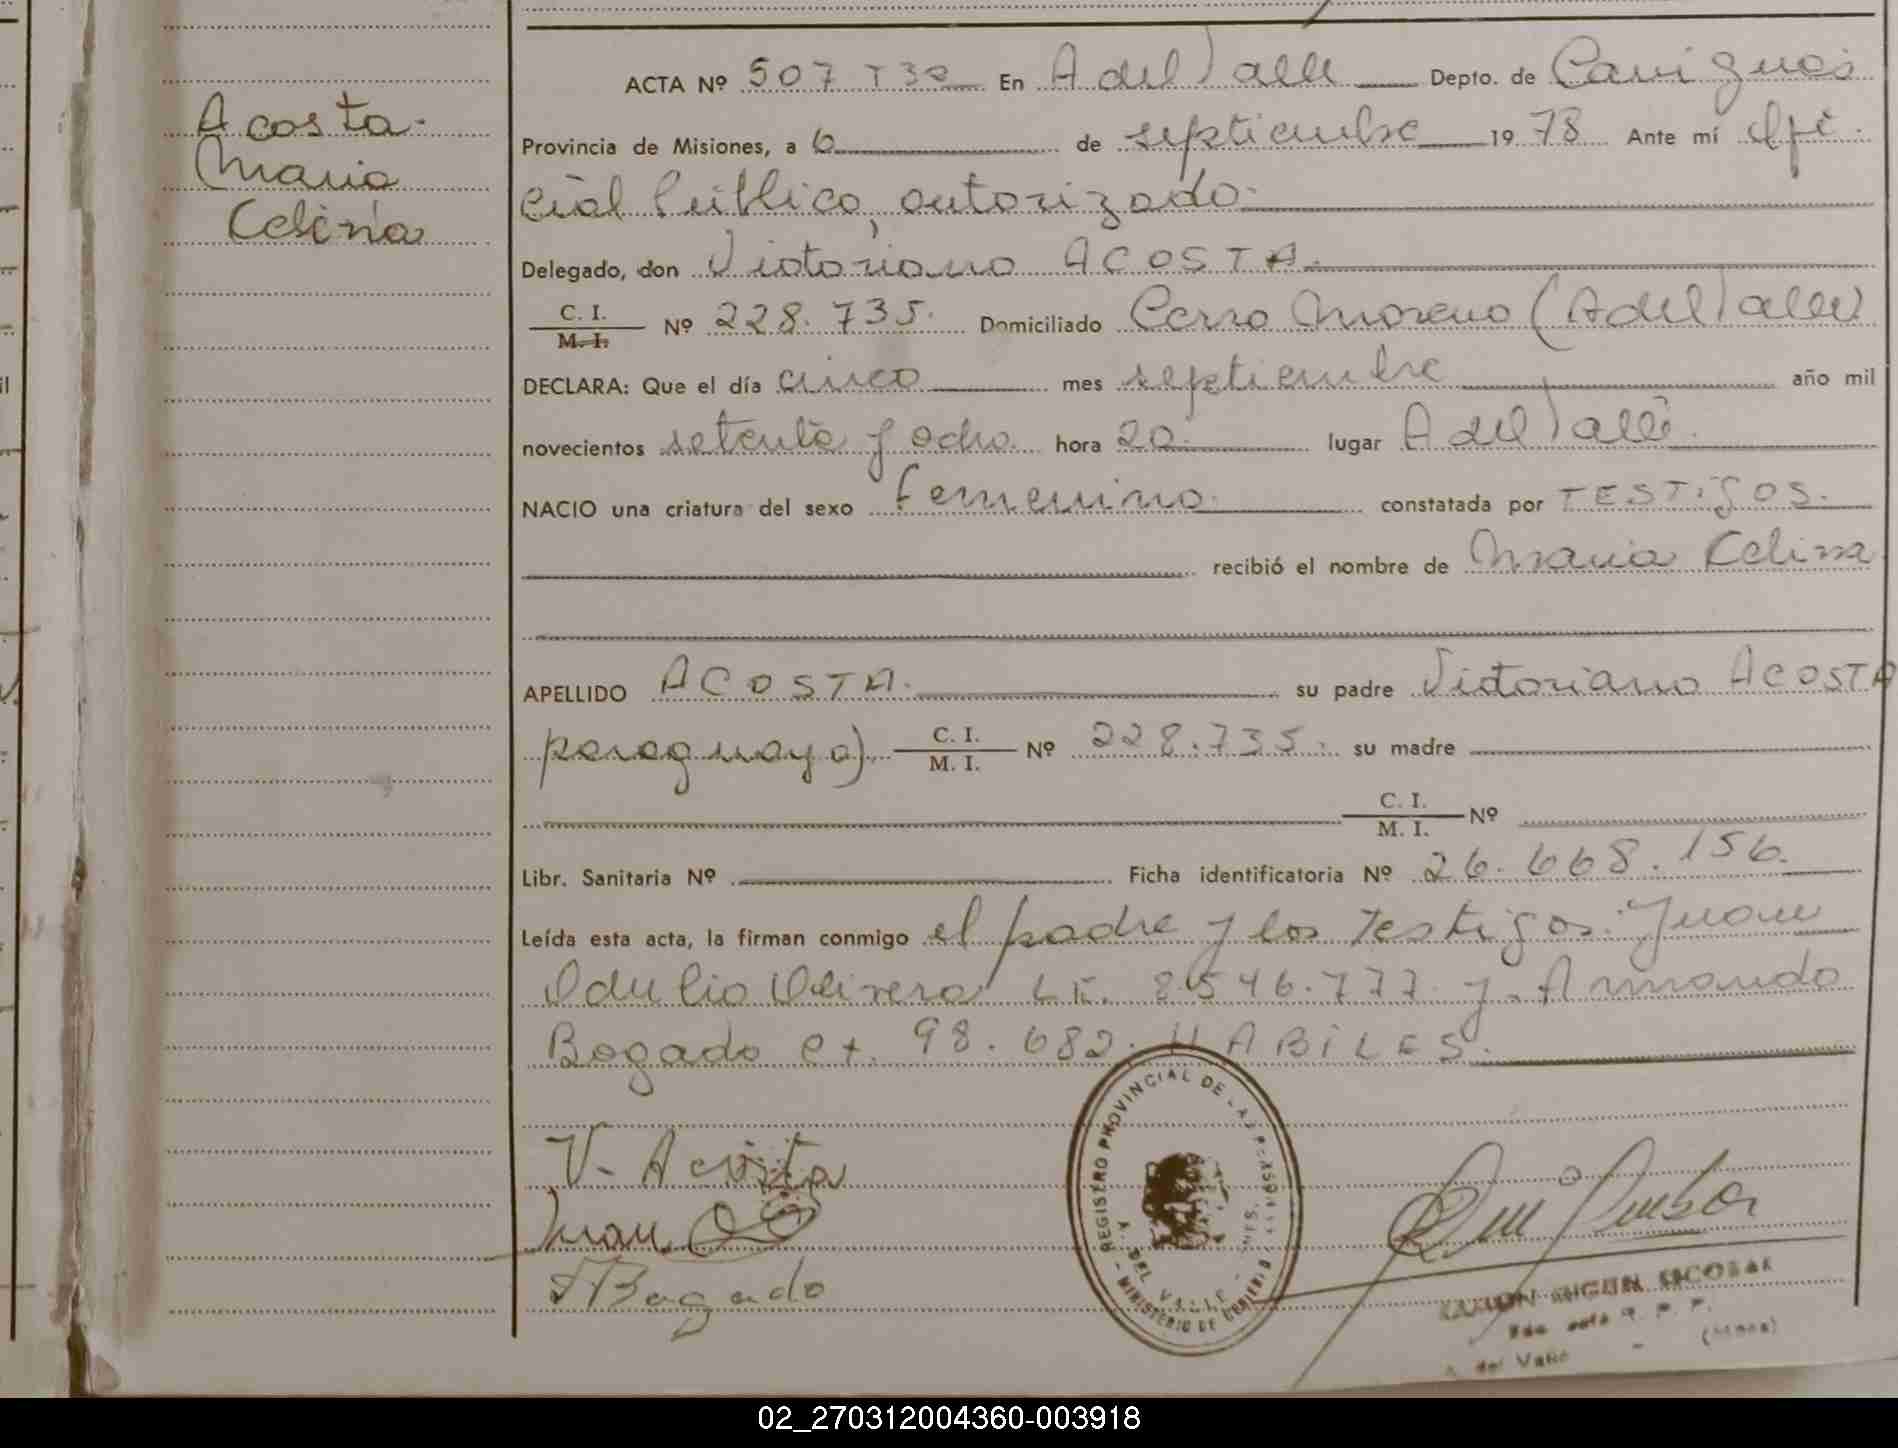 Acosta.
Maria
Celina
ACTA Nº 507 T 3º En A del Valle Depto. de Cainguás
Provincia de Misiones, a 6 de septiembre 19 78 Ante mí Ofi
cial Público, autorizado.
Delegado, don Victoriano ACOSTA.
C. I.
M. I.
Nº 228.735. Domiciliado Cerro Moreno (A del Valle)
DECLARA: Que el día cinco mes septiembre año mil
novecientos setenta y ocho hora 20. lugar A del Valle.
NACIO una criatura del sexo femenino. constatada por TESTIGOS.
recibió el nombre de Maria Celina
APELLIDO ACOSTA. su padre Victoriano ACOSTA
paraguayo). C. I.
M. I.
Nº 228.735. su madre
C. I.
M. I.
Nº
Libr. Sanitaria Nº Ficha identificatoria Nº 26.668.156.
Leída esta acta, la firman conmigo el padre y los Testigos: Juan
Odulio Olivera LE. 8546.777. y Armando
Bogado ex. 98.682. HABILES.
V. Acosta
Juan
ABogado
REGISTRO PROVINCIAL DE LAS PERSONAS
MINISTERIO DE GOBIERNO
A. DEL VALLE - MNES.
RAMON MIGUEL ESCOBAR
R. P. P.
A. del Valle (Mnes)
02_270312004360-003918